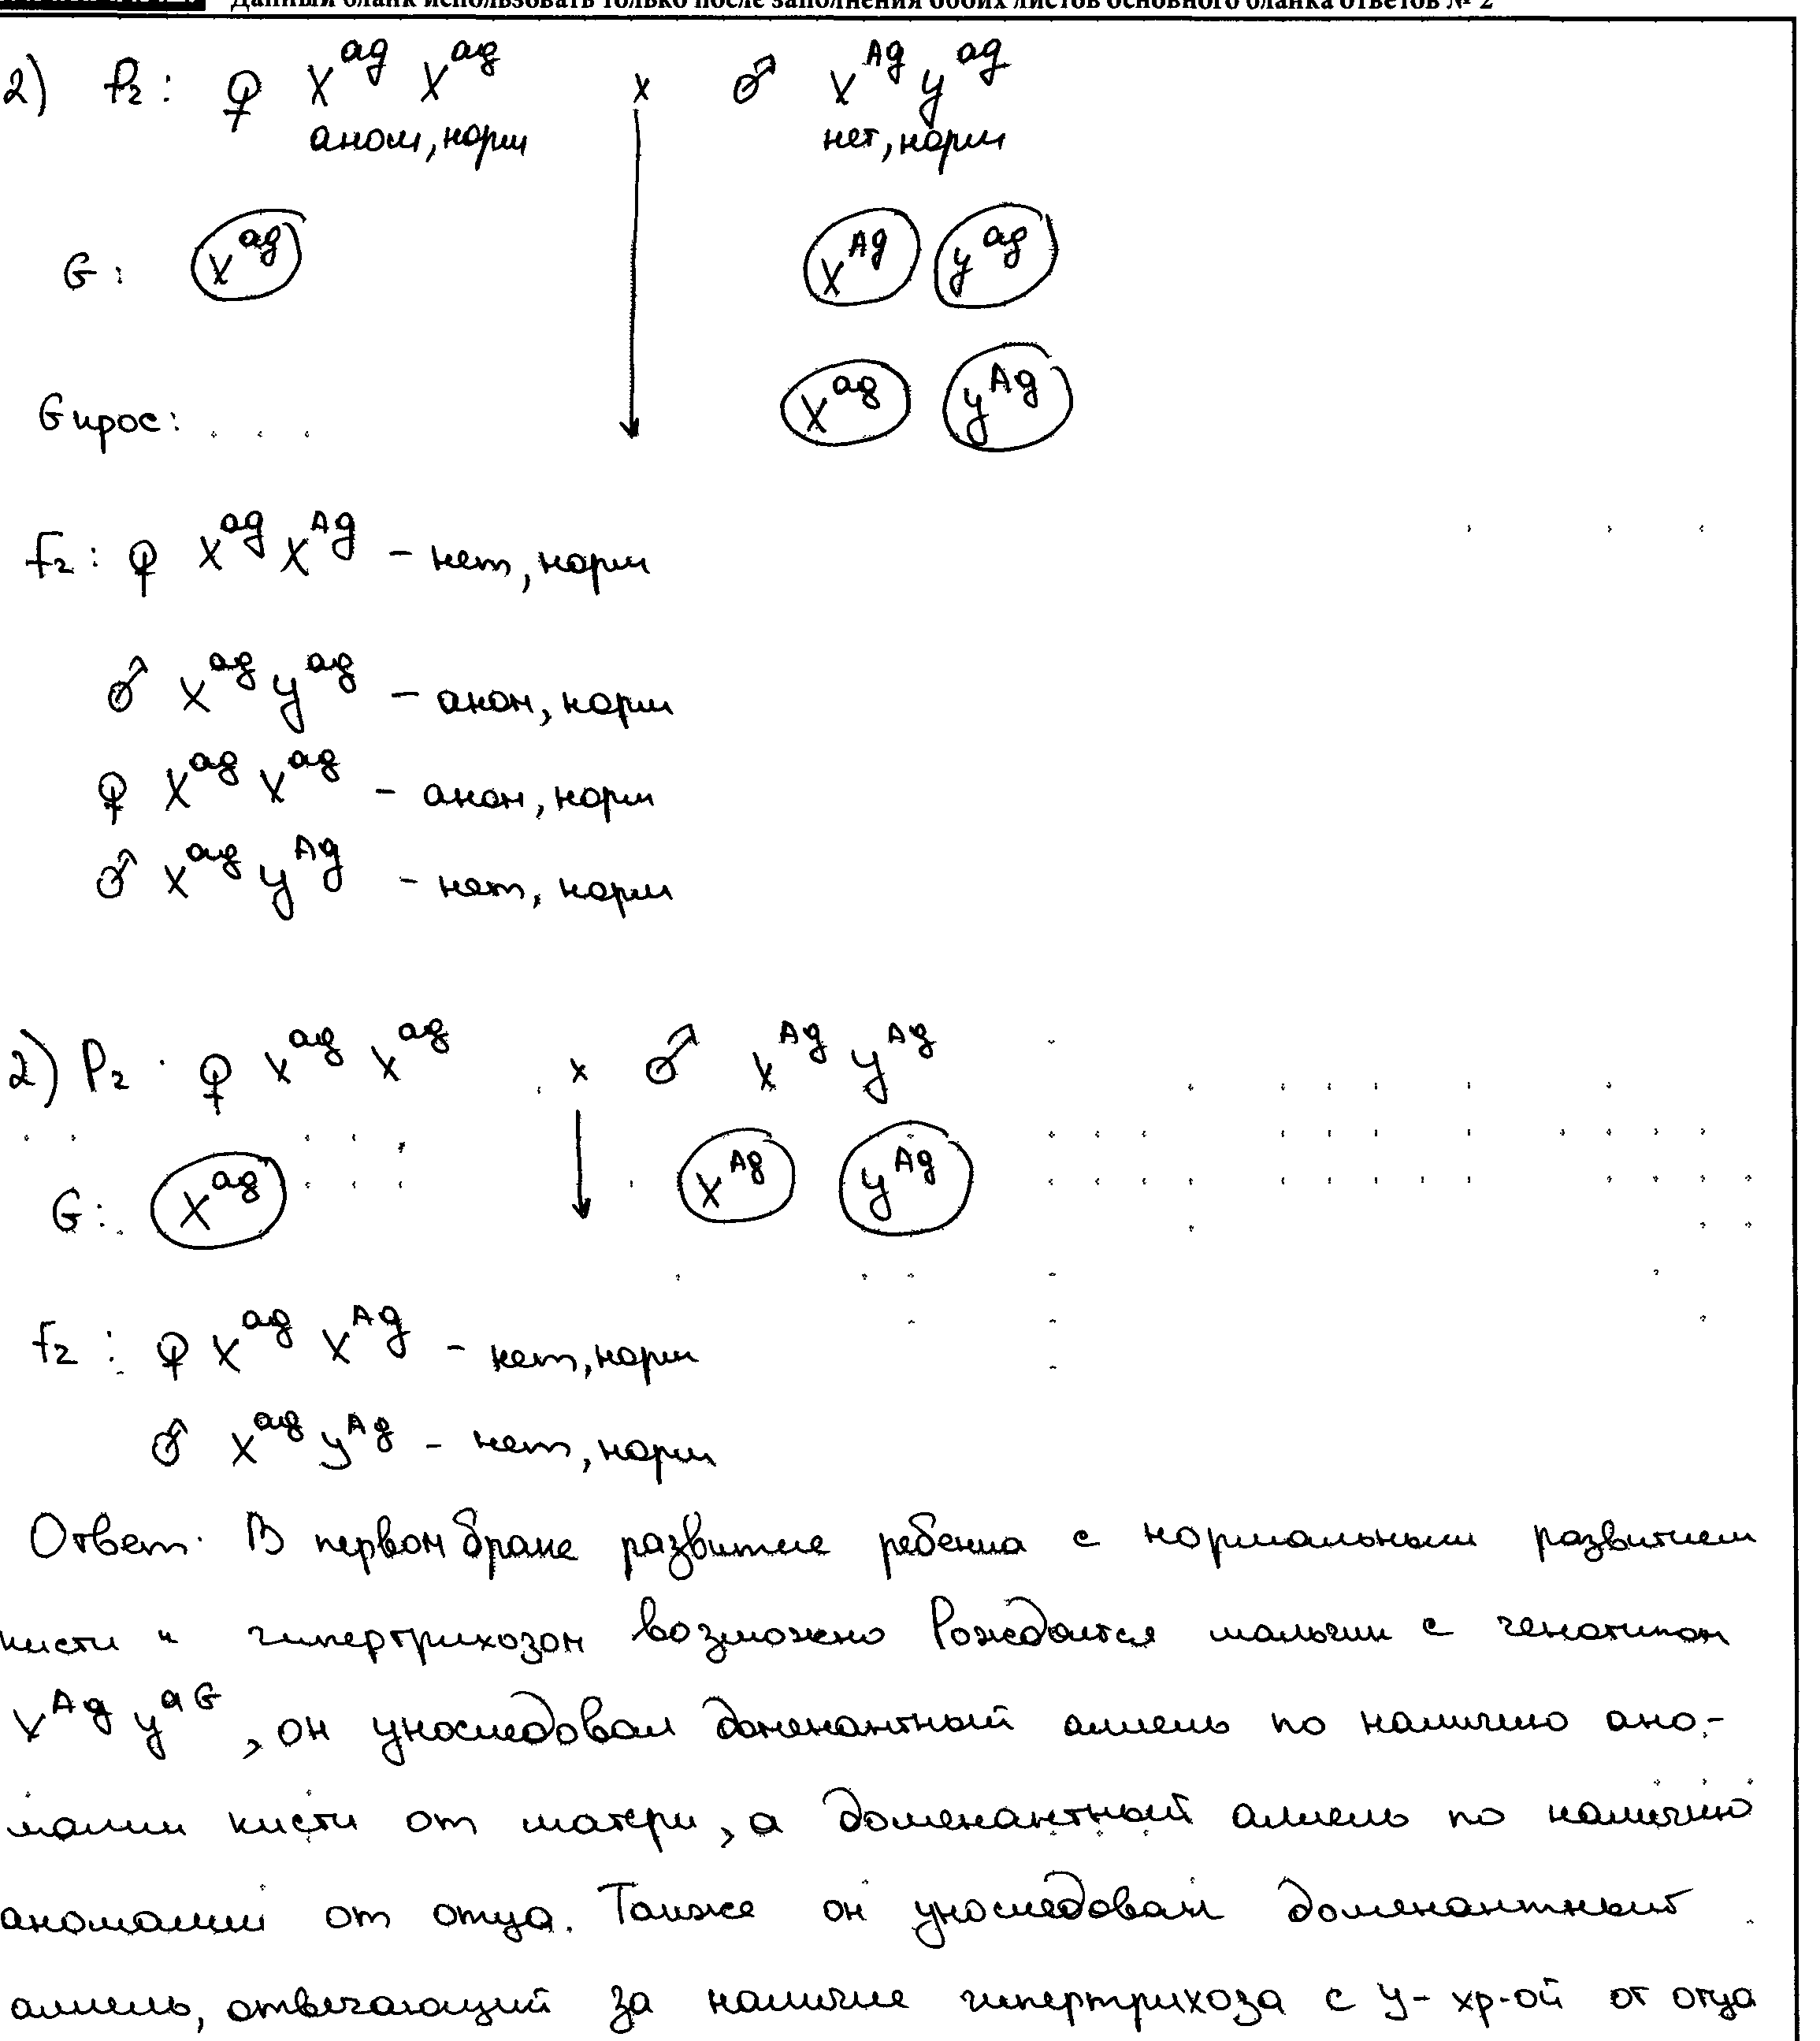 Данный бланк использовать только после заполнения обоих листов основного бланка ответов № 2
2) P₂: ♀ X^ag X^ag x ♂ X^Ag y^ag
аном, норм нет, норм
G: X^ag X^Ag y^ag
Gкрос: X^ag y^Ag
F₂: ♀ X^ag X^Ag – нет, норм
♂ X^ag y^ag – аном, норм
♀ X^ag X^ag – аном, норм
♂ X^ag y^Ag – нет, норм
2) P₂ : ♀ X^ag X^ag x ♂ X^Ag y^Ag
G: X^ag X^Ag y^Ag
F₂ : ♀ X^ag X^Ag – нет, норм
♂ X^ag y^Ag – нет, норм
Ответ: В первом браке развитие ребенка с нормальным развитием
кисти и гипертрихозом возможно Рождается мальчик с генотипом
X^Ag y^aG, он унаследовал доменантный аллель по наличию ано-
малии кисти от матери, а доменантный аллель по наличию
аномалии от отца. Также он унаследовал доменантный
аллель, отвечающий за наличие гипертрихоза с y-хр-ой от отца